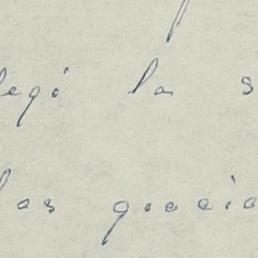 legó la s
las gracia